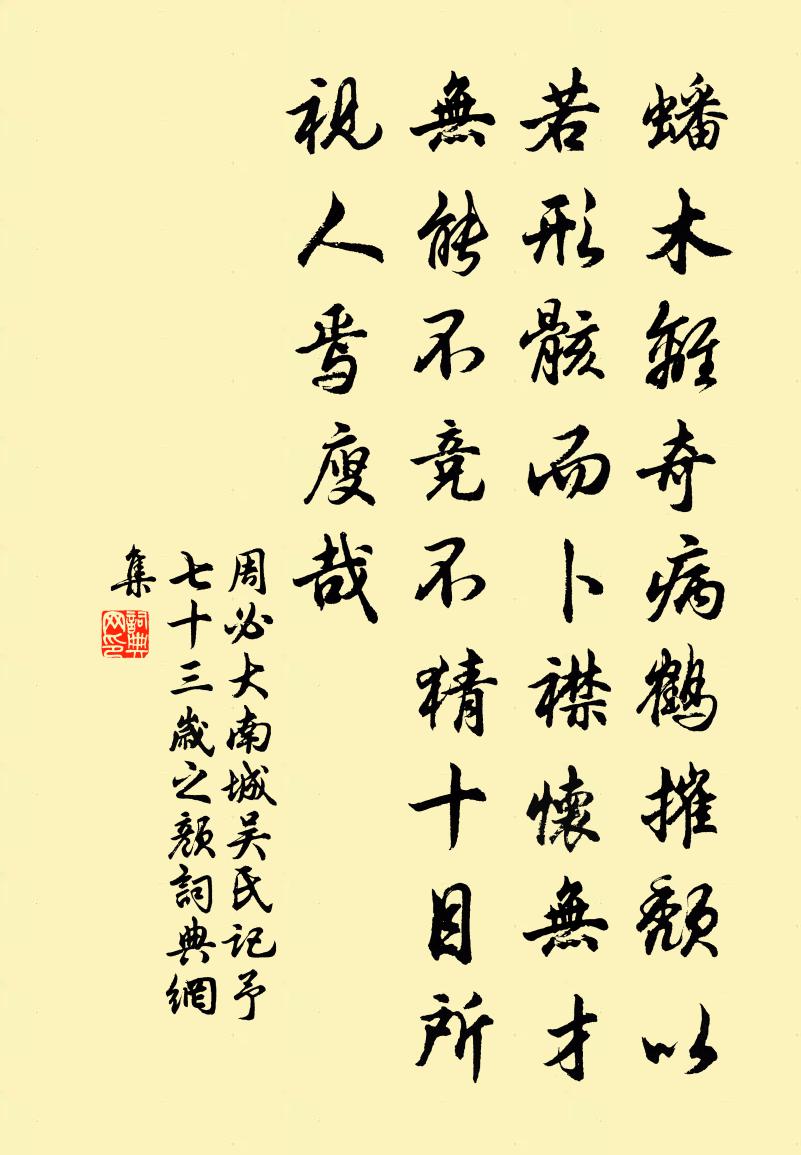 蟠木離奇病鶴摧頹以
若形骸而卜襟懷無才
無能不競不猜十目所
視人焉廋哉
周必大南城吴氏記予
七十三歲之顏詞典網
集
詞典網印